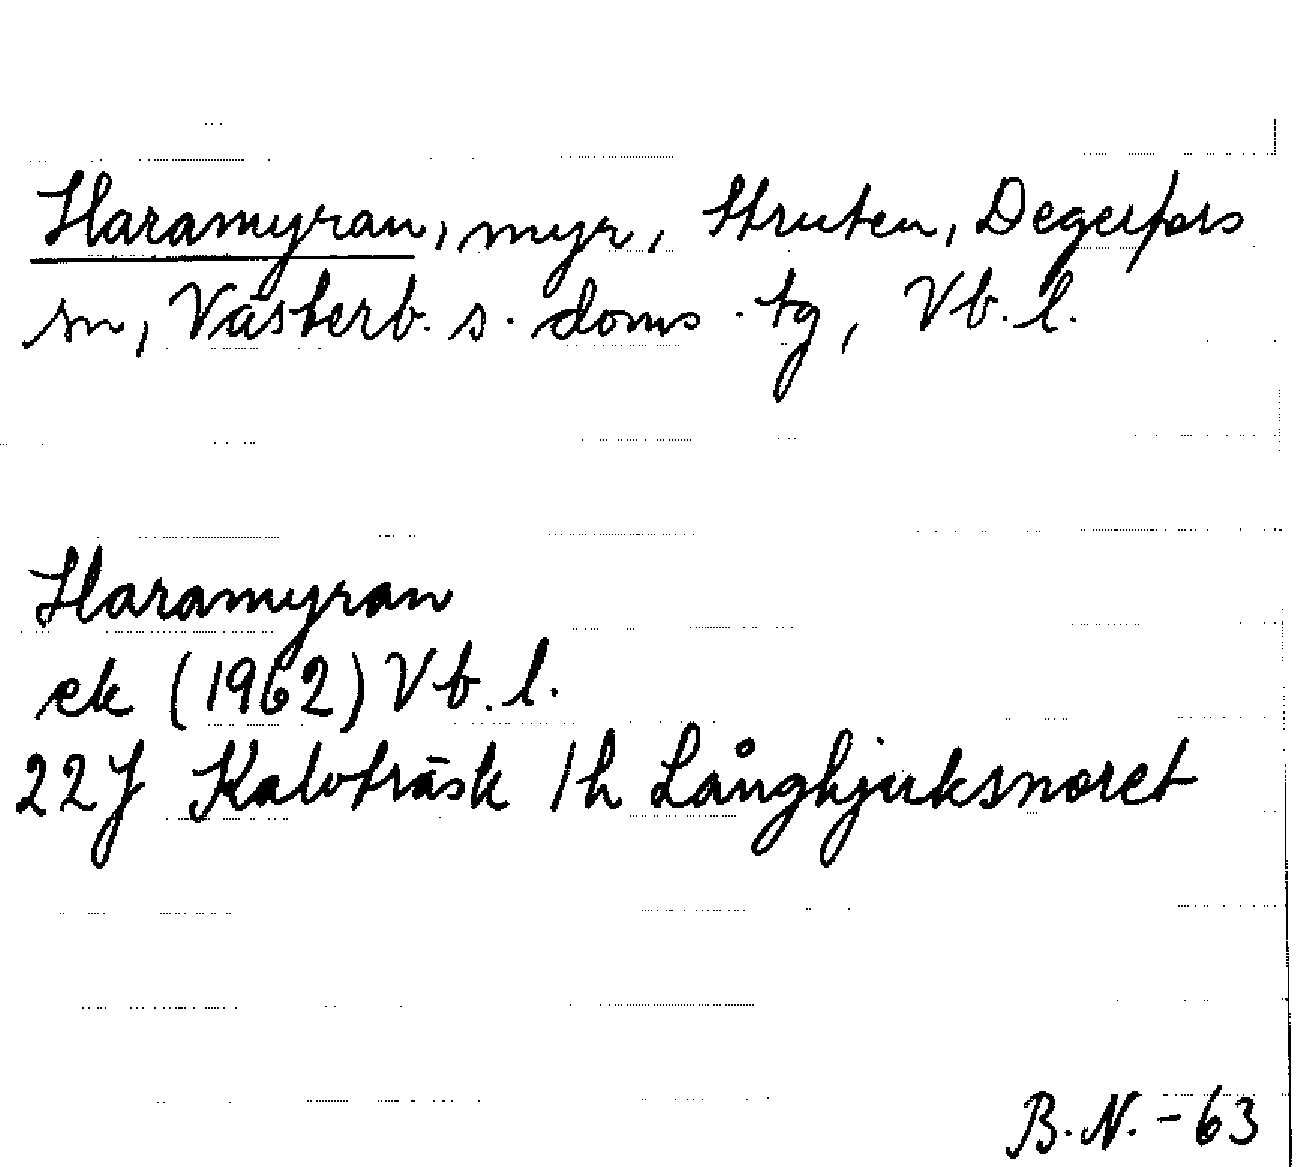 Haramyran, myr, Struten, Degerfors
sn, Västerb. s. doms. tg, Vb. l.
Haramyran
ek (1962) Vb. l.
22J Kalvträsk 1h Långhjuksnoret
B.N. -63